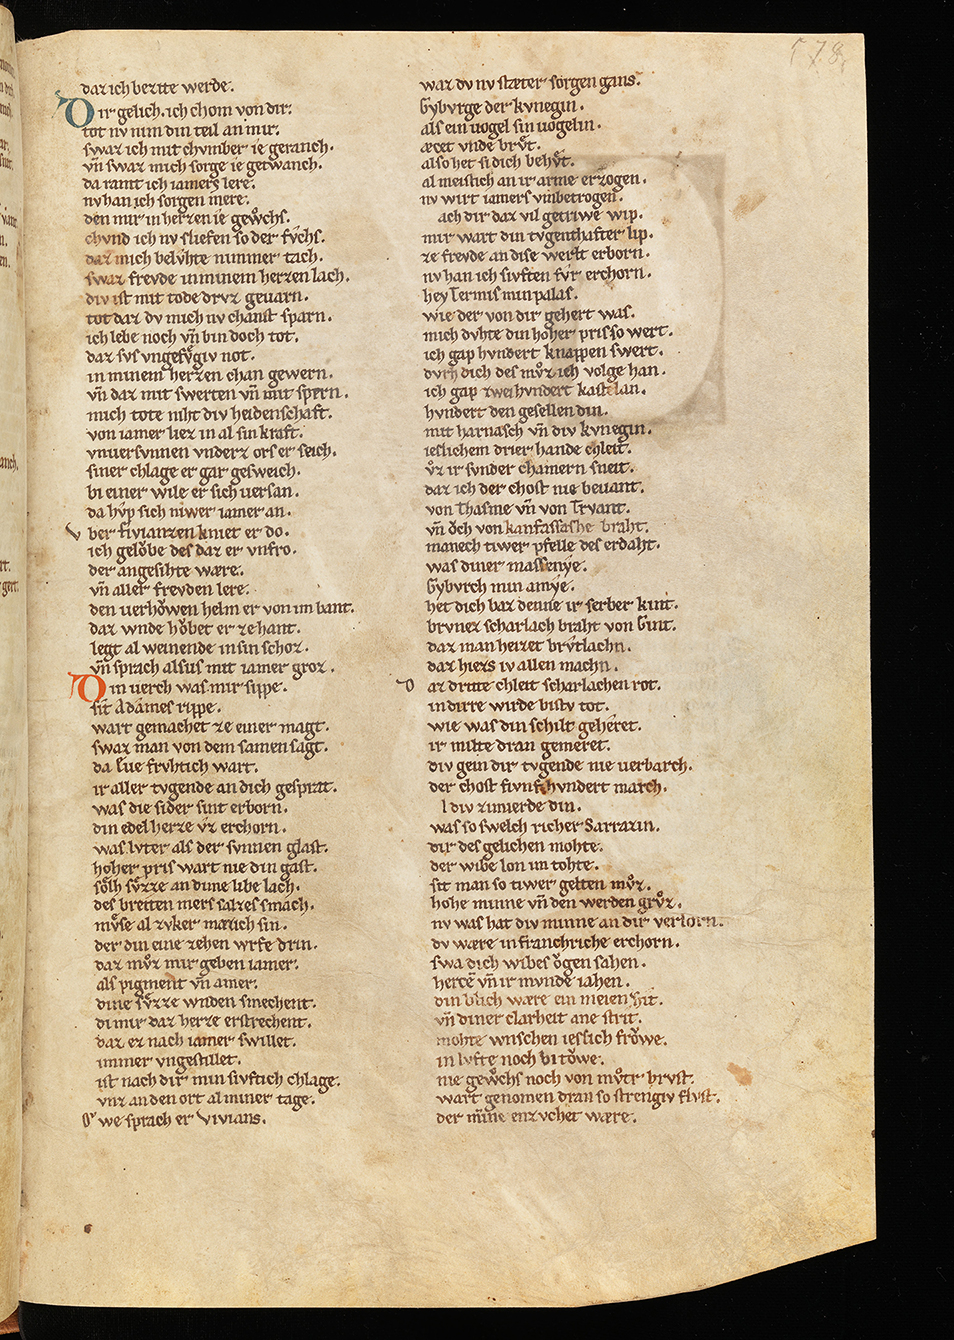 578
daz ich berite werde.
Dir gelich. ich chom von dir:
tot nv nim din teil an mir:
swaz ich mit chvmber ie geranch.
vn̄ swaz mich sorge ie getwanch.
da ramt ich iamers lere.
nv han ich sorgen mere.
den mir in herzen ie gewͦchs.
chvnd ich nv sliefen so der fv́hs.
daz mich belv́hte nimmer tach.
swaz frevde in minem herzen lach.
div ist mit tode drvz gevarn.
tot daz dv mich nv chanst sparn.
ich lebe noch vn̄ bin doch tot.
daz svs vngefv̊giv not.
in minem herzen chan gewern.
vn̄ daz mit swerten vn̄ mit spern.
mich tote niht div heidenschaft.
von iamer liez in al sin kraft.
vnversvnnen vnderz ors er seich.
siner chlage er gar gesweich.
bi einer wile er sich versan.
da hv̊p sich niwer iamer an.
vber fivianzen kniet er do.
ich gelǒbe des daz er vnfro.
der angesihte wære.
vn̄ aller frevden lere.
den verhǒwen helm er von im bant.
daz wnde hǒbet er zehant.
legt al weinende in sin schoz.
vn̄ sprach alsus mit iamer groz.
Din verch was mir sippe.
sit Adames rippe.
wart gemachet ze einer magt.
swaz man von dem samen sagt.
da Eue frvhtich wart.
ir aller tvgende an dich gespart.
was die sider sint erborn.
din edel herze v́z erchorn.
was lvter als der svnnen glast.
hoher pris wart nie din gast.
sǒlh sv̊zze an dime libe lach.
des breiten mers salzes smach.
mv̊se al zvker mæzich sin.
der din eine zehen wrfe drin.
daz mv̊z mir geben iamer.
als pigment vn̄ amer.
dine sv̊zze wnden smechent.
di mir daz herze erstrechent.
daz ez nach iamer swillet.
immer vngestillet.
ist nach dir min sivftich chlage.
vnz an den ort al miner tage.
Owe sprach er Vivians.
waz dv nv stæter sorgen gans.
Gybvrge der kvnegin.
als ein vogel sin vogelin.
æcet vnde brv̊t.
also het si dich behv̊t.
al meistich an ir arme erzogen.
nv wirt iamers vmbetrogen.
ach dir daz vil getriwe wip.
mir wart din tvgenthafter lip.
ze frevde an dise werlt erborn.
nv han ich sivften fv́r erchorn.
hey Termis min palas.
wie der von dir gehert was.
mich dvhte din hoher pris so wert.
ich gap hvndert knappen swert.
dvrh dich des mv̊z ich volge han.
ich gap zweihvndert kastelan.
hvndert den gesellen din.
mit harnasch vn̄ div kvnegin.
ieslichem drier hande chleit.
v̊z ir svnder chamern sneit.
daz ich der chost nie bevant.
von Thasme vn̄ von Tryant.
vn̄ ǒch von kanfassashe braht.
manech tiwer pfelle des erdaht.
was diner massenýe.
Gybvrch min amýe.
het dich baz denne ir selber kint.
brvnez scharlach braht von Gint.
daz man heizet brv́tlachn.
daz hiezs iv allen machn.
Daz dritte chleit scharlachen rot.
in dirre wirde bistv tot.
wie was din schilt geheret.
ir milte dran gemeret.
div gein dir tvgende nie verbarch.
der chost fivnfhvndert march.
l div zimierde din.
was so swelch richer Sarrazin.
dir des gelichen mohte.
der wibe lon im tohte.
sit man so tiwer gelten mv̊z.
hohe minne vn̄ den werden grv̊z.
nv was hat div minne an dir verlorn.
dv wære in franchriche erchorn.
swa dich wibes ǒgen sahen.
herce vn̄ ir mvnde iahen.
din blich wære ein meien zit.
vn̄ diner clarheit ane strit.
mohte wnschen ieslich frǒwe.
in lvfte noch bi tǒwe.
nie gewͦchs noch von mv̊ter brvst.
wart genomen dran so strengiv flvst.
der minne enzvchet wære.